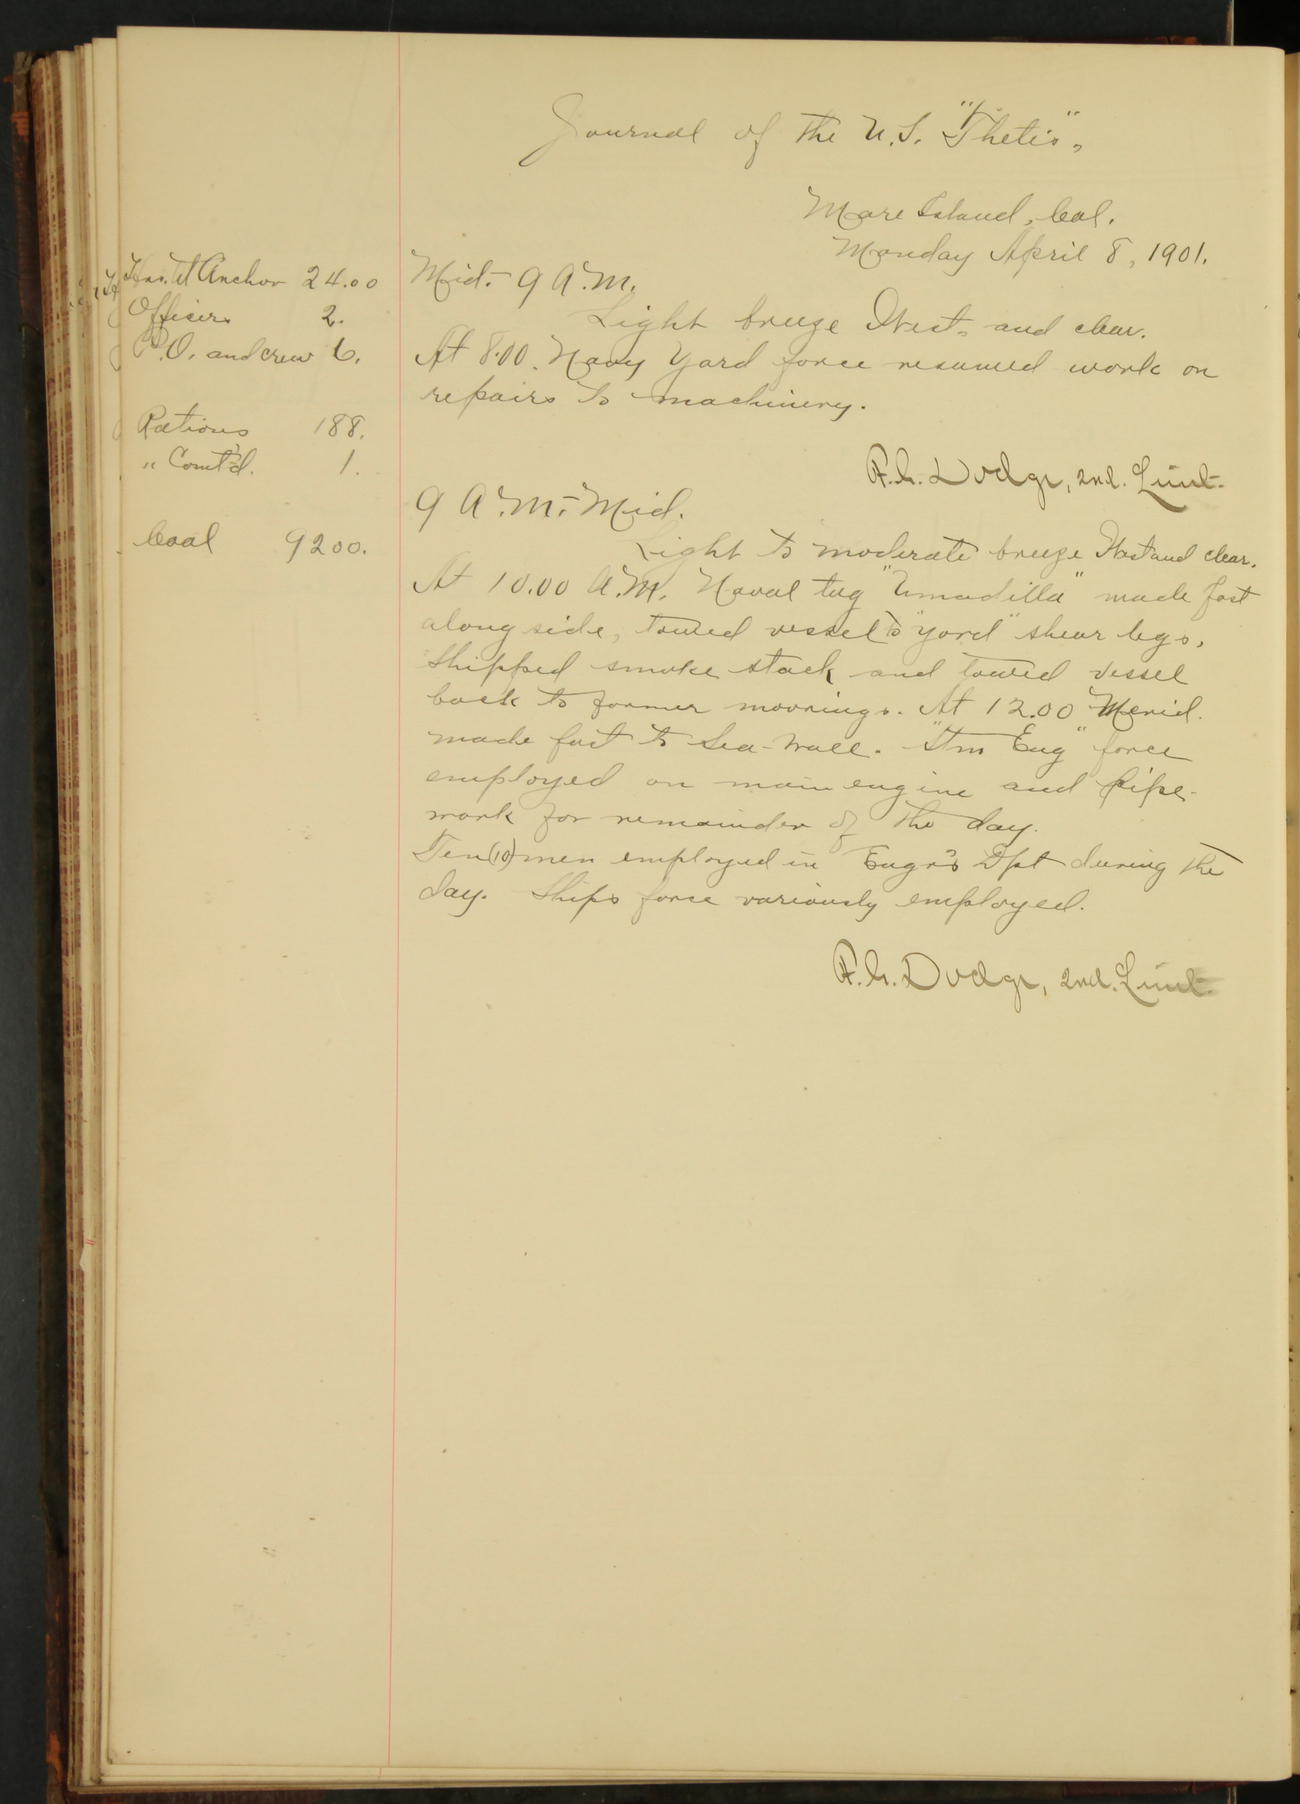 Journal of the U.S. "Thetis",
Mare Island, Cal.
Monday April 8, 1901.
Hrs. at Anchor 24.00
Officers 2.
P.O. and crew 6.
Rations 188.
" Comt'd. 1.
Coal 9200.
Mid. - 9 A.M.
Light breeze West, and clear.
At 8.00. Navy Yard force resumed work on
repairs to machinery.
F.G. Dodge, 2nd. Lieut.
9 A.M. - Mid.
Light to moderate breeze West and clear.
At 10.00 A.M. Naval tug "Unadilla" made fast
along side, towed vessel to "yard" shear legs,
Shipped smoke stack and towed vessel
back to former moorings. At 12.00 Merid.
made fast to Sea-wall. "Stm Eng" force
employed on main engine and pipe-
work for remainder of the day.
Ten (10) men employed in Engr's Dpt during the
day. Ships force variously employed.
F.G. Dodge, 2nd. Lieut.